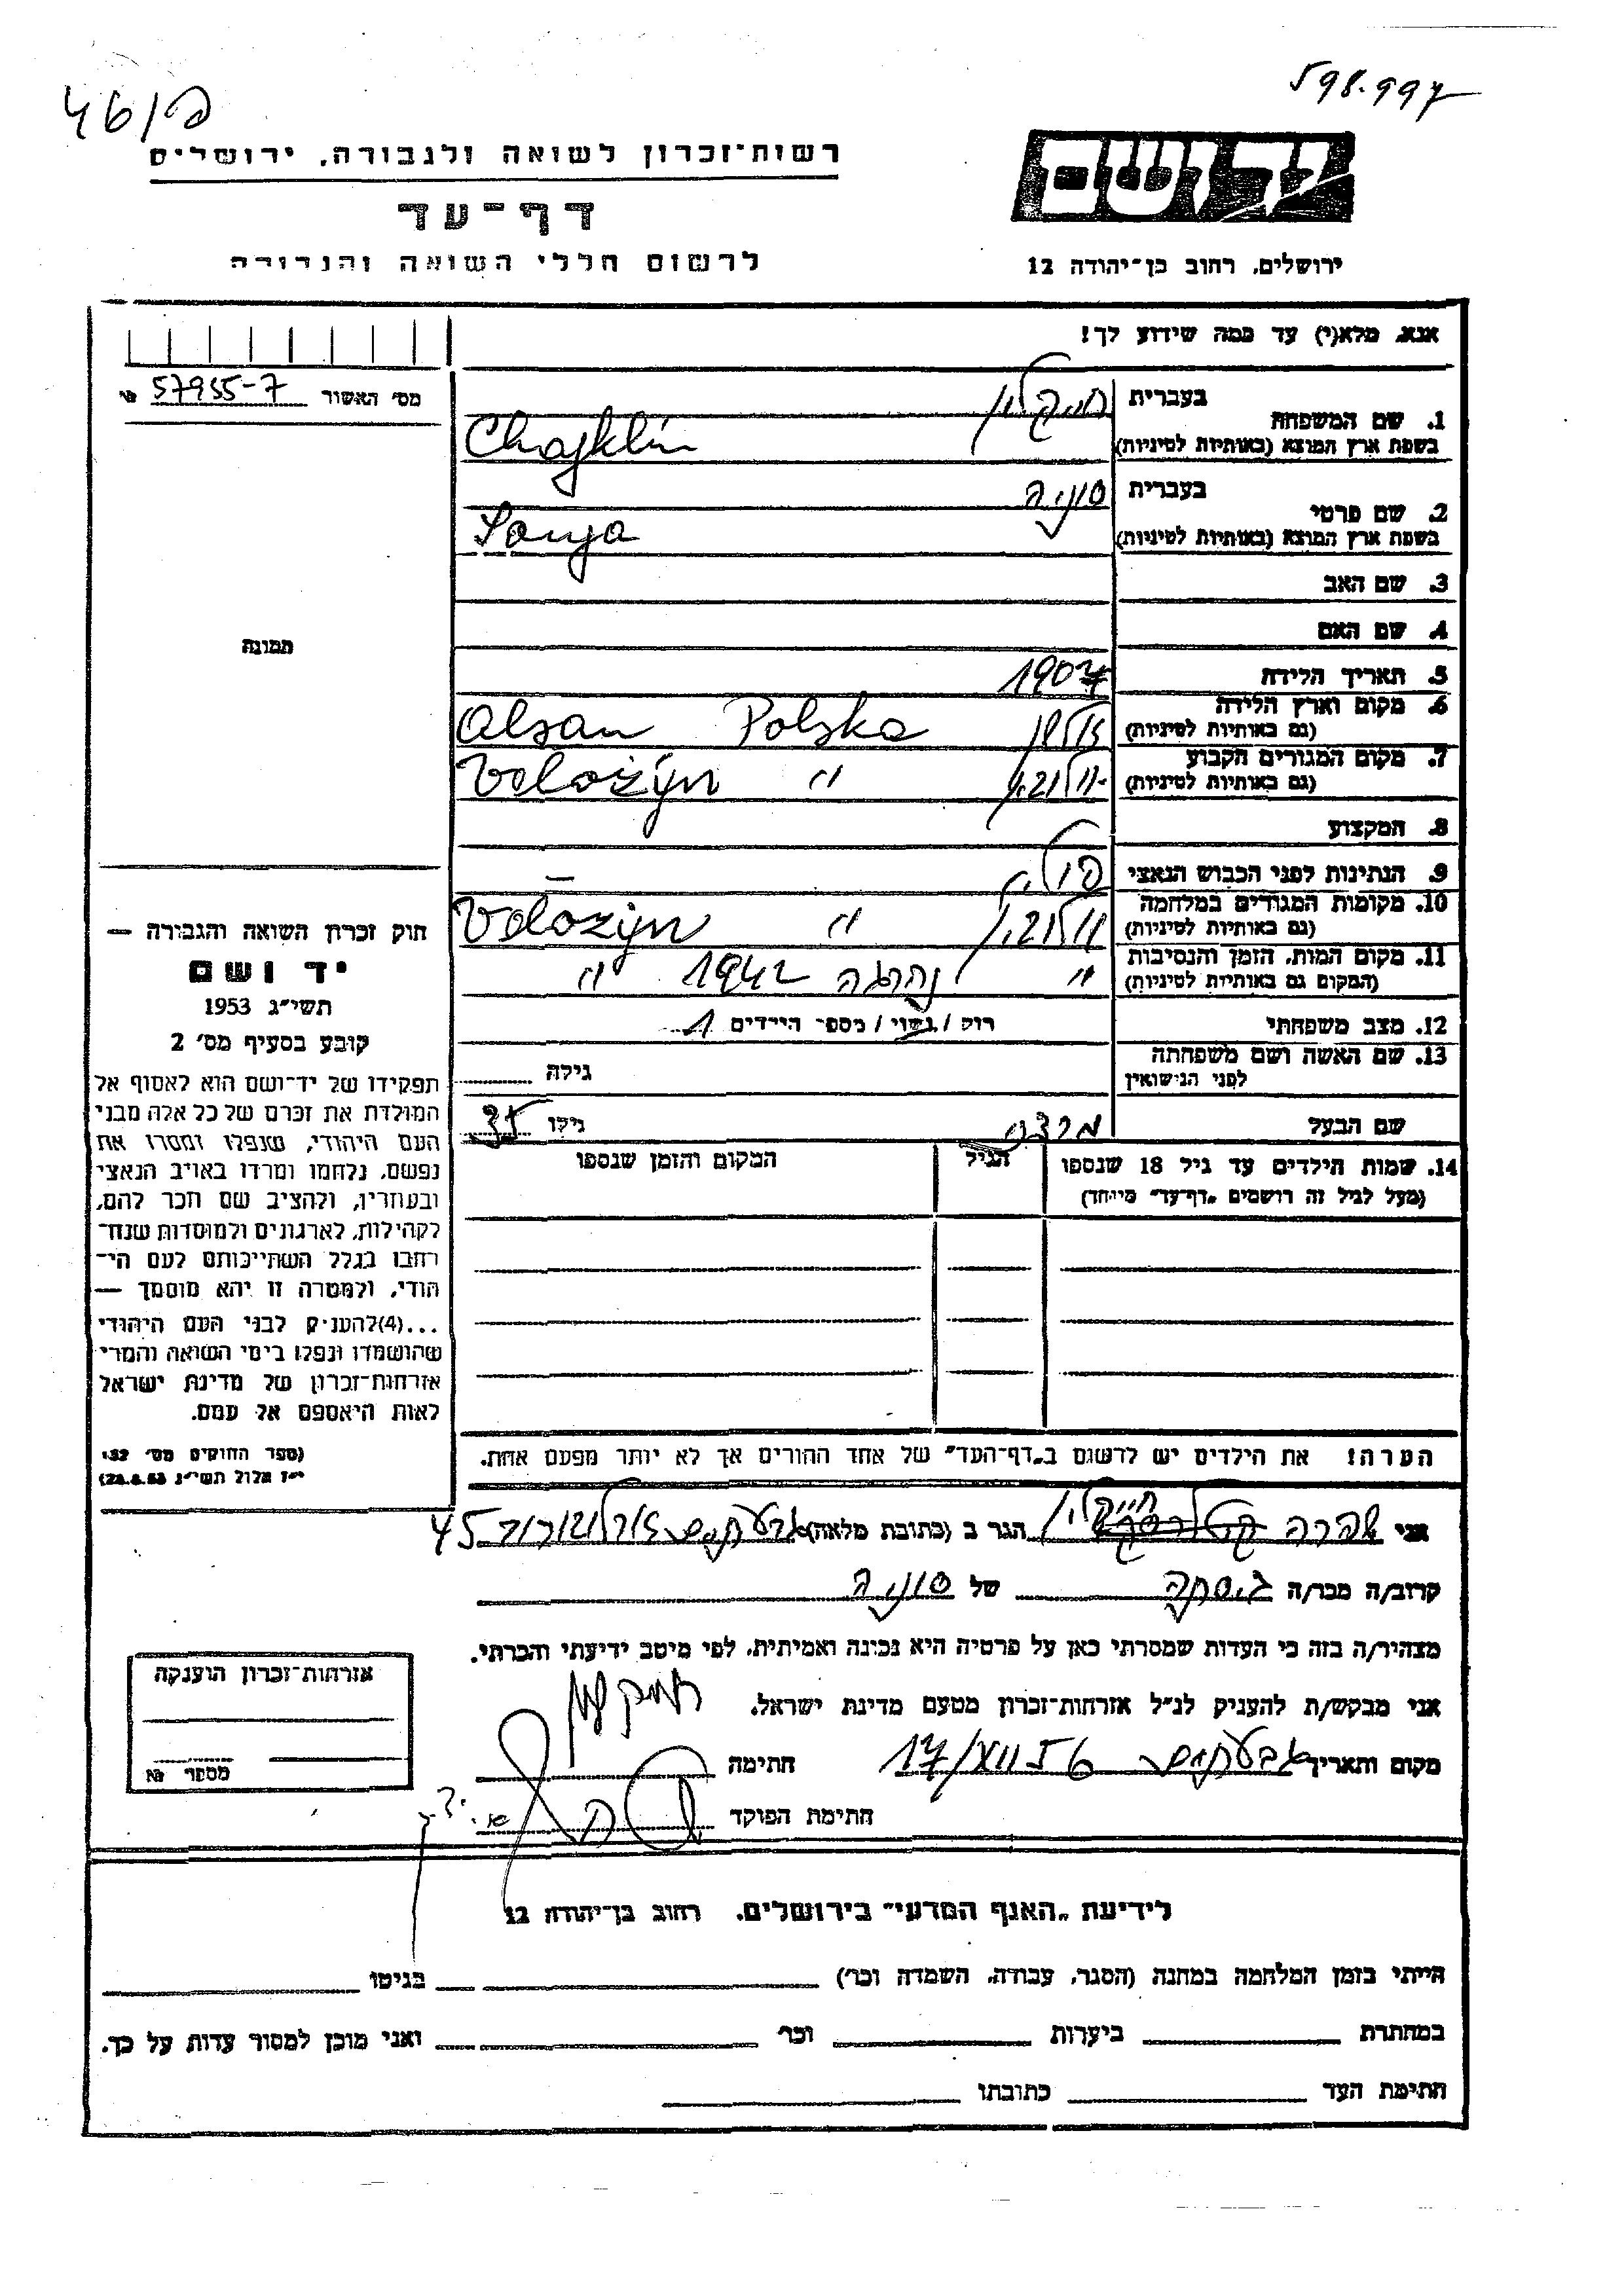 598.997
46/פ
יד ושם
רשות־זכרון לשואה ולגבורה, ירושלים
דף־עד
ירושלים, רחוב בן־יהודה 12
לרשום חללי השואה והגבורה
אנא, מלא(י) עד כמה שידוע לך!
מס׳ האשור 57955-7 №
1. שם המשפחה
בעברית חייקלין
בשפת ארץ המוצא (באותיות לטיניות) Chajklin
2. שם פרטי
בעברית סוניה
בשפת ארץ המוצא (באותיות לטיניות) Sonja
3. שם האב
4. שם האם
תמונה
5. תאריך הלידה 1907
6. מקום וארץ הלידה
(גם באותיות לטיניות) Olsan Polska
7. מקום המגורים הקבוע
(גם באותיות לטיניות) וולוז׳ין Volożyn "
8. המקצוע
9. הנתינות לפני הכבוש הנאצי פולין —
10. מקומות המגורים במלחמה
(גם באותיות לטיניות) וולוז׳ין " Volożyn
11. מקום המות, הזמן והנסיבות
(המקום גם באותיות לטיניות) " נהרגה 1942 "
12. מצב משפחתי רווק / נשוי / מספר הילדים 1
13. שם האשה ושם משפחתה
לפני הנישואין גילה
שם הבעל גילו 35
14. שמות הילדים עד גיל 18 שנספו הגיל המקום והזמן שנספו
(מעל לגיל זה רושמים „דף־עד" מיוחד)
הערה! את הילדים יש לרשום ב„דף־העד" של אחד ההורים אך לא יותר מפעם אחת.
חוק זכרון השואה והגבורה —
יד ושם
תשי״ג 1953
קובע בסעיף מס׳ 2
תפקידו של יד־ושם הוא לאסוף אל
המולדת את זכרם של כל אלה מבני
העם היהודי, שנפלו ומסרו את
נפשם, נלחמו ומרדו באויב הנאצי
ובעוזריו, ולהציב שם וזכר להם,
לקהילות, לארגונים ולמוסדות שנח־
רבו בגלל השתייכותם לעם הי־
הודי, ולמטרה זו יהא מוסמך —
...(4)להעניק לבני העם היהודי
שהושמדו ונפלו בימי השואה והמרי
אזרחות־זכרון של מדינת ישראל
לאות היאספם אל עמם.
(ספר החוקים מס׳ 132,
י״ז אלול תשי״ג 28.8.53)
אני שרה חייקלין הגר ב (כתובת מלאה) גבעתיים 45
קרוב/ה מכר/ה גיסתה של סוניה
מצהיר/ה בזה כי העדות שמסרתי כאן על פרטיה היא נכונה ואמיתית, לפי מיטב ידיעתי והכרתי.
אני מבקש/ת להעניק לנ״ל אזרחות־זכרון מטעם מדינת ישראל.
מקום ותאריך גבעתיים 17/ חתימה
חתימת הפוקד
אזרחות־זכרון הוענקה
מספר №
לידיעת „האגף המדעי" בירושלים, רחוב בן־יהודה 12
הייתי בזמן המלחמה במחנה (הסגר, עבודה, השמדה וכו׳) בגיטו
במחתרת ביערות וכו׳ ואני מוכן למסור עדות על כך.
חתימת העד כתובתו